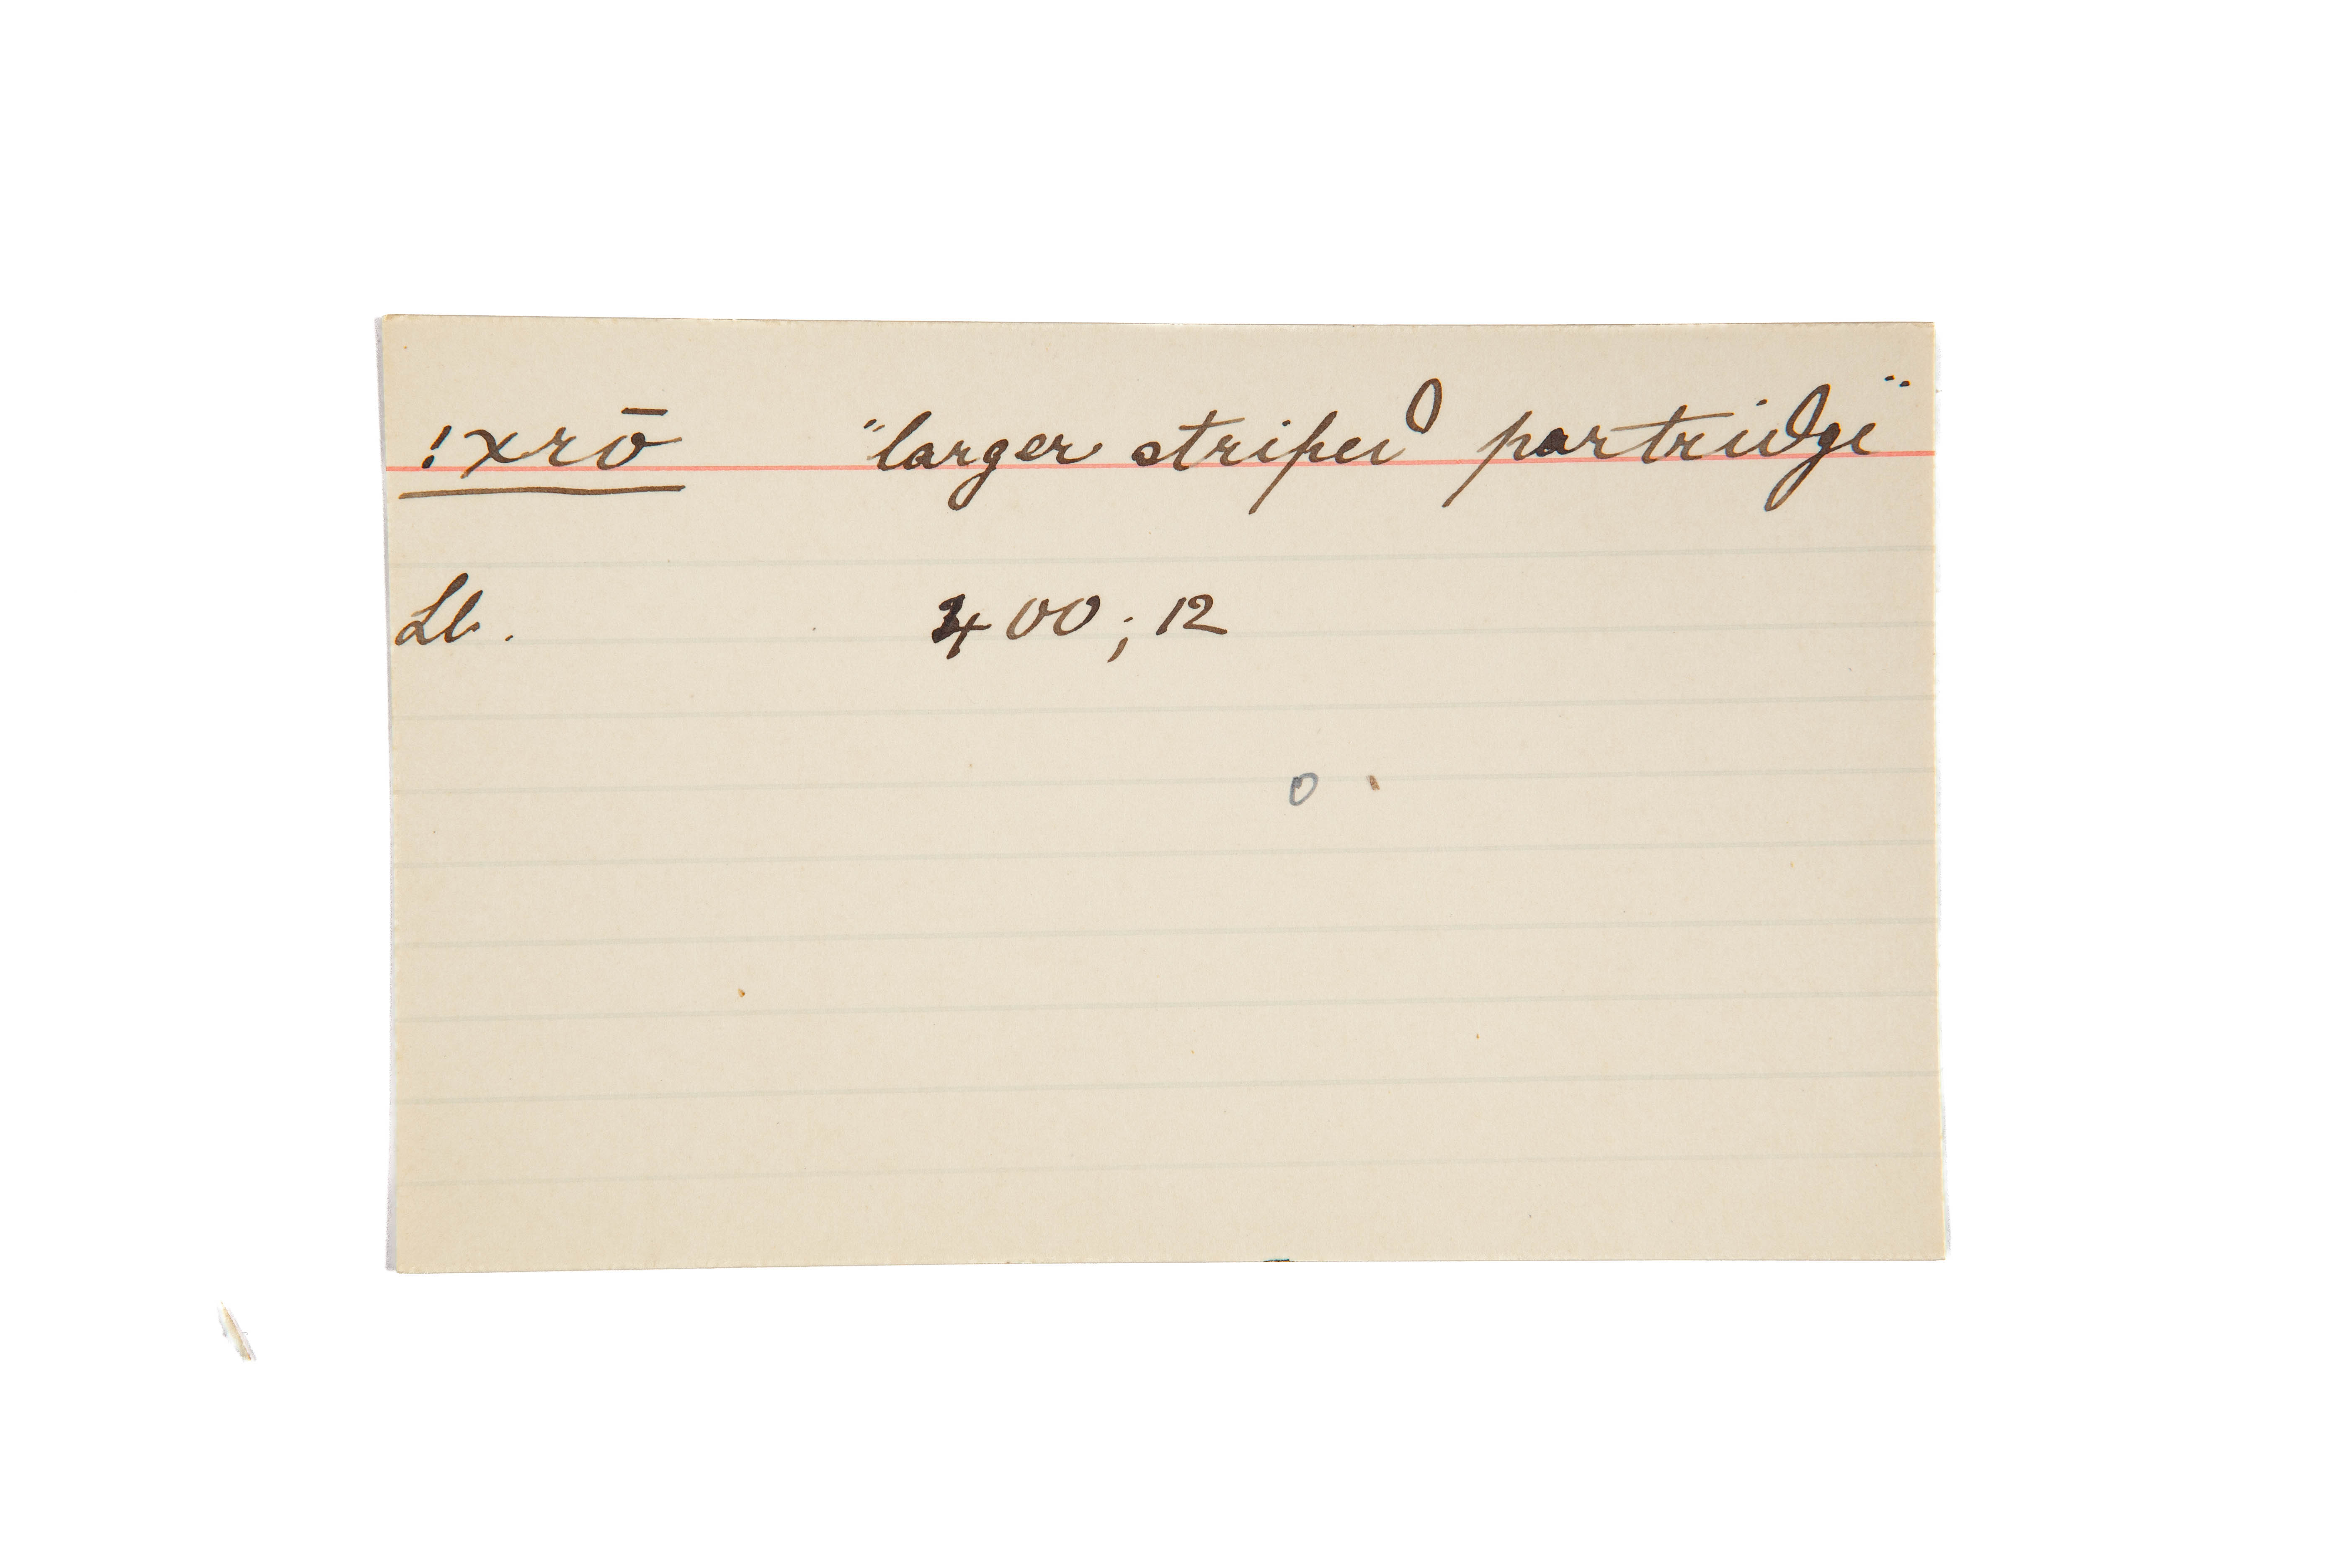 !xrō "larger striped partridge"
Ll. 400; 12
o